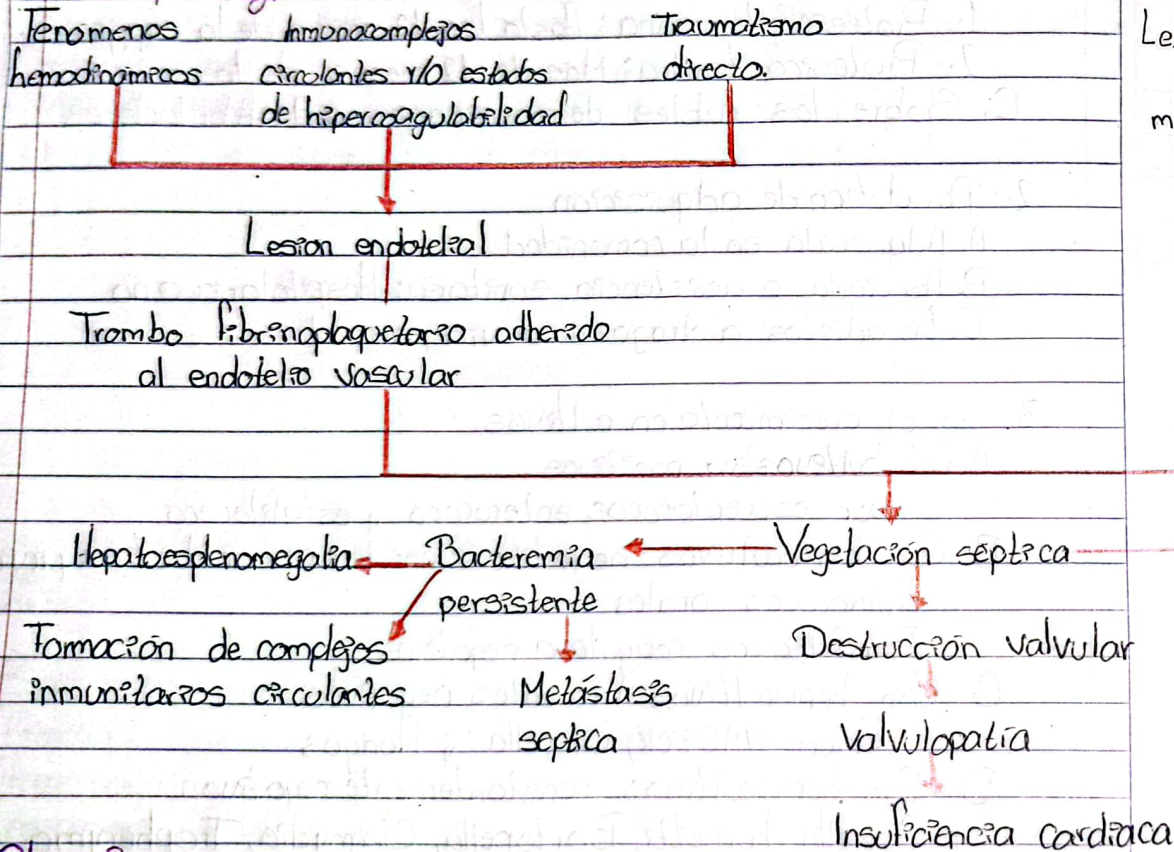 Fenomenos hemodinámicos
Inmunocomplejos circulantes y/o estados de hipercoagulabilidad
Traumatismo directo.
Le
m
Lesion endotelial
Trombo fibrinoplaquetario adherido
al endotelio vascular
Hepatoesplenomegalia
Bacteremia
persistente
Vegetación séptica
Formación de complejos
inmunitarios circulantes
Metástasis
septica
Destrucción valvular
Valvulopatía
Insuficiencia cardiaca